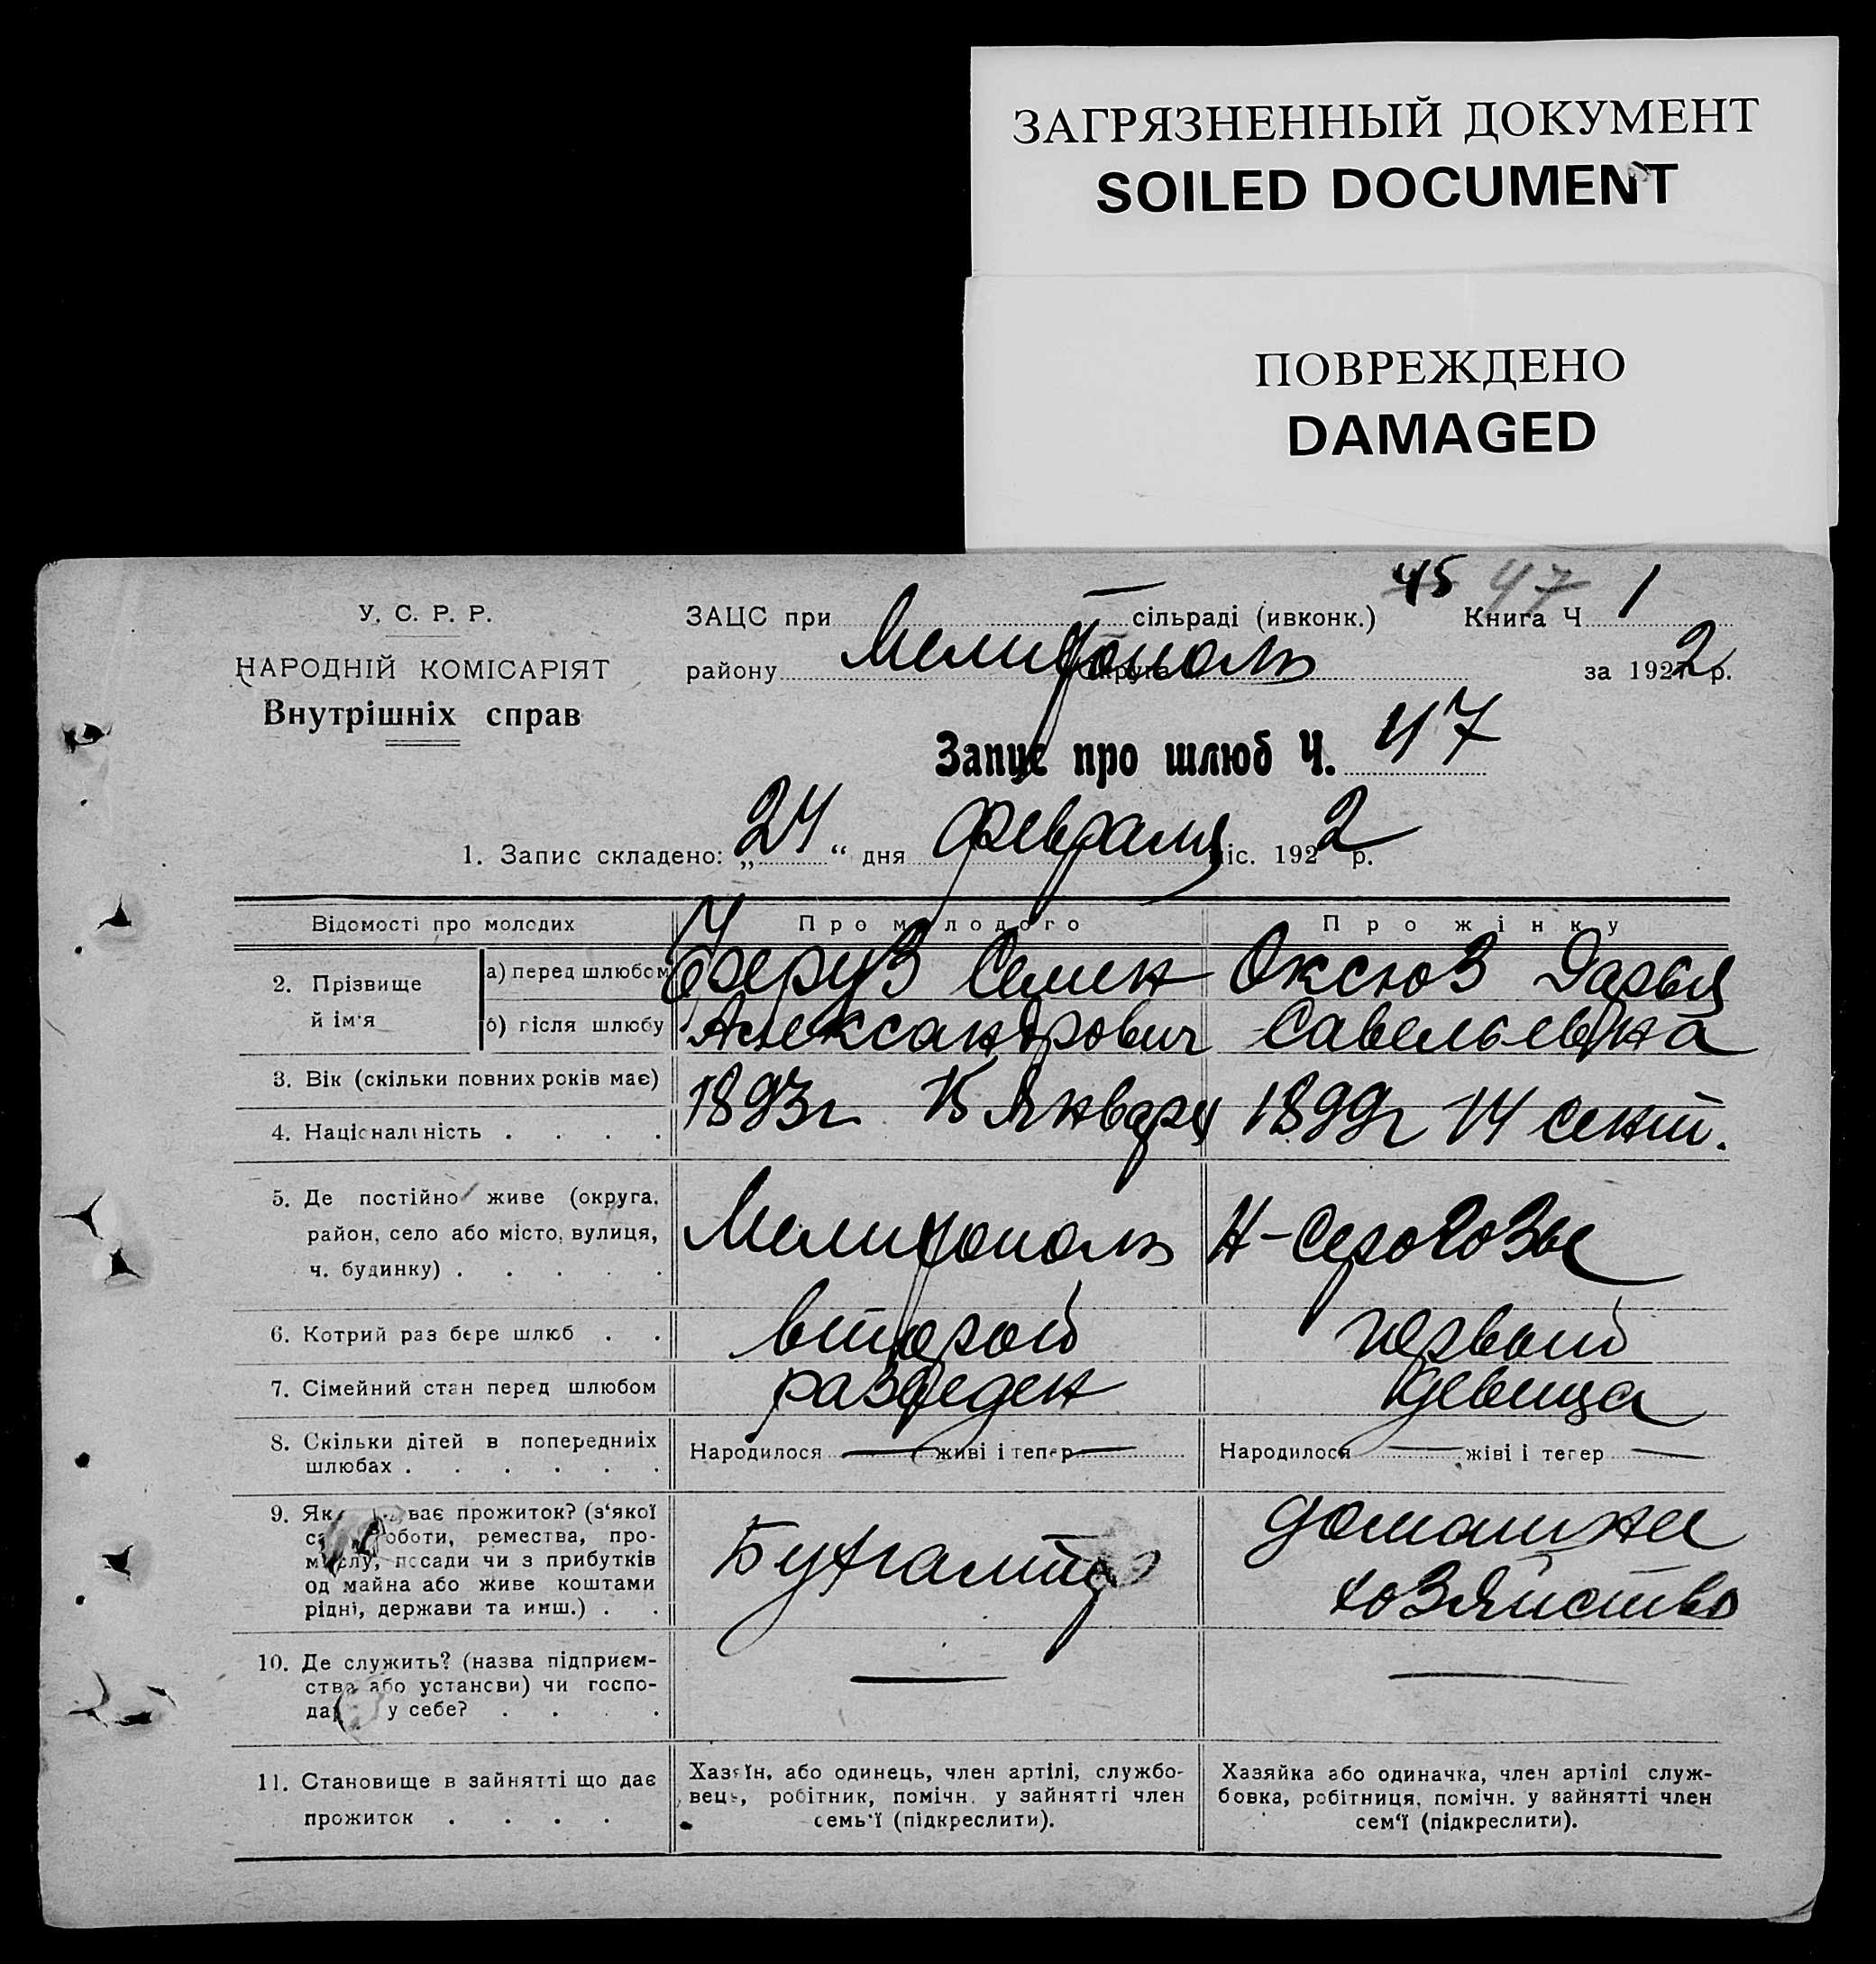 ЗАГРЯЗНЕННЫЙ ДОКУМЕНТ
SOILED DOCUMENT
ПОВРЕЖДЕНО
DAMAGED
45 47
У. С. Р. Р.
НАРОДНІЙ КОМІСАРІЯТ
Внутрішніх справ
ЗАЦС при сільраді (ивконк.) Книга Ч 1
району Мелитополь за 1922 р.
Запис про шлюб Ч. 47
1. Запис складено: „24“ дня февраля міс. 1922 р.
Відомості про молодих Про молодого Про жінку
2. Прізвище й ім'я
а) перед шлюбом Семен Оксюз Дарья
б) після шлюбу Александрович Савельевна
3. Вік (скільки повних років має)
4. Національність . . . .
1893г 15 Января 1899г 14 сент.
5. Де постійно живе (округа,
район, село або місто, вулиця,
ч. будинку) . . . . .
Мелитополь Н-Серогозы
6. Котрий раз бере шлюб . . второй первый
7. Сімейний стан перед шлюбом разведен девица
8. Скільки дітей в попередниіх
шлюбах . . . . . .
Народилося — живі і тепер — Народилося — жіві і тепер —
9. Як ває прожиток? (з'якої
оботи, ремества, про-
мислу, посади чи з прибутків
од майна або живе коштами
рідні, держави та инш.) . .
Бухгалтер
домашнее
хозяйство
10. Де служить? (назва підприєм-
ства або установи) чи госпо-
дар у себе? . . . .
— —
11. Становище в зайнятті що дає
прожиток . . . .
Хазяїн, або одинець, член артілі, службо-
вець, робітник, помічн. у зайнятті член
семь'ї (підкреслити).
Хазяйка або одиначка, член артілі служ-
бовка, робітниця, помічн. у зайнятті член
сем'ї (підкреслити).